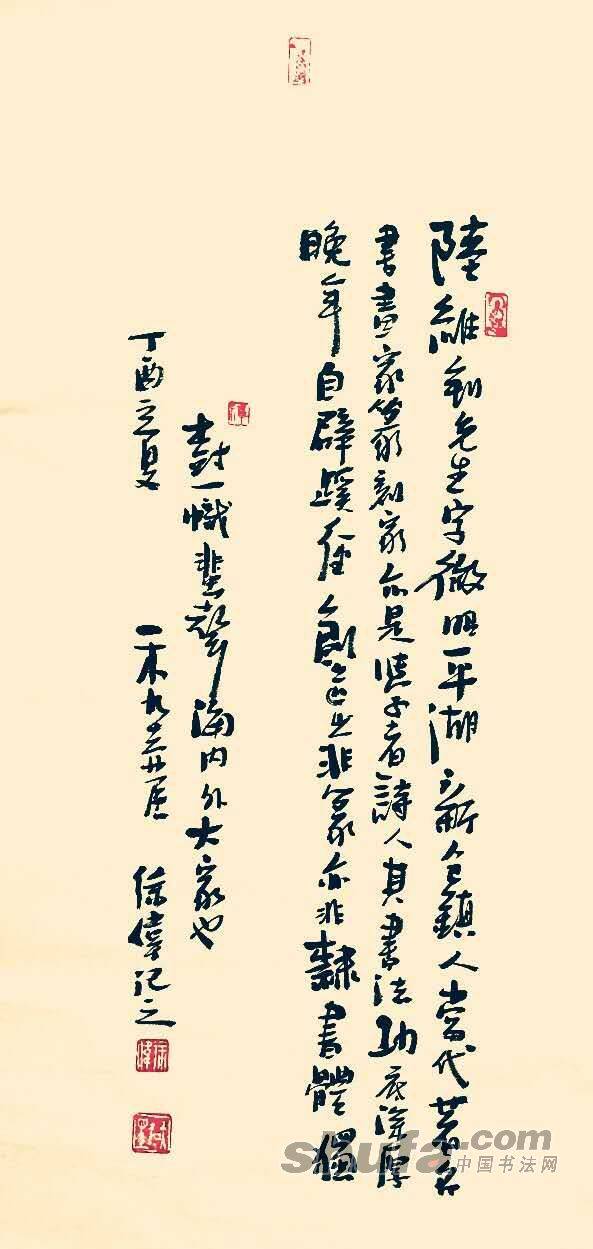 陸維釗先生字微昭平湖市新倉鎮人當代著名
書畫家篆刻家亦是學者詩人其書法功底深厚
晚年自辟蹊徑創造出非篆亦非隸書體獨
樹一幟蜚聲海内外大家也
丁酉之夏 一木九三廿居 徐偉記之
shufa.com
中国书法网